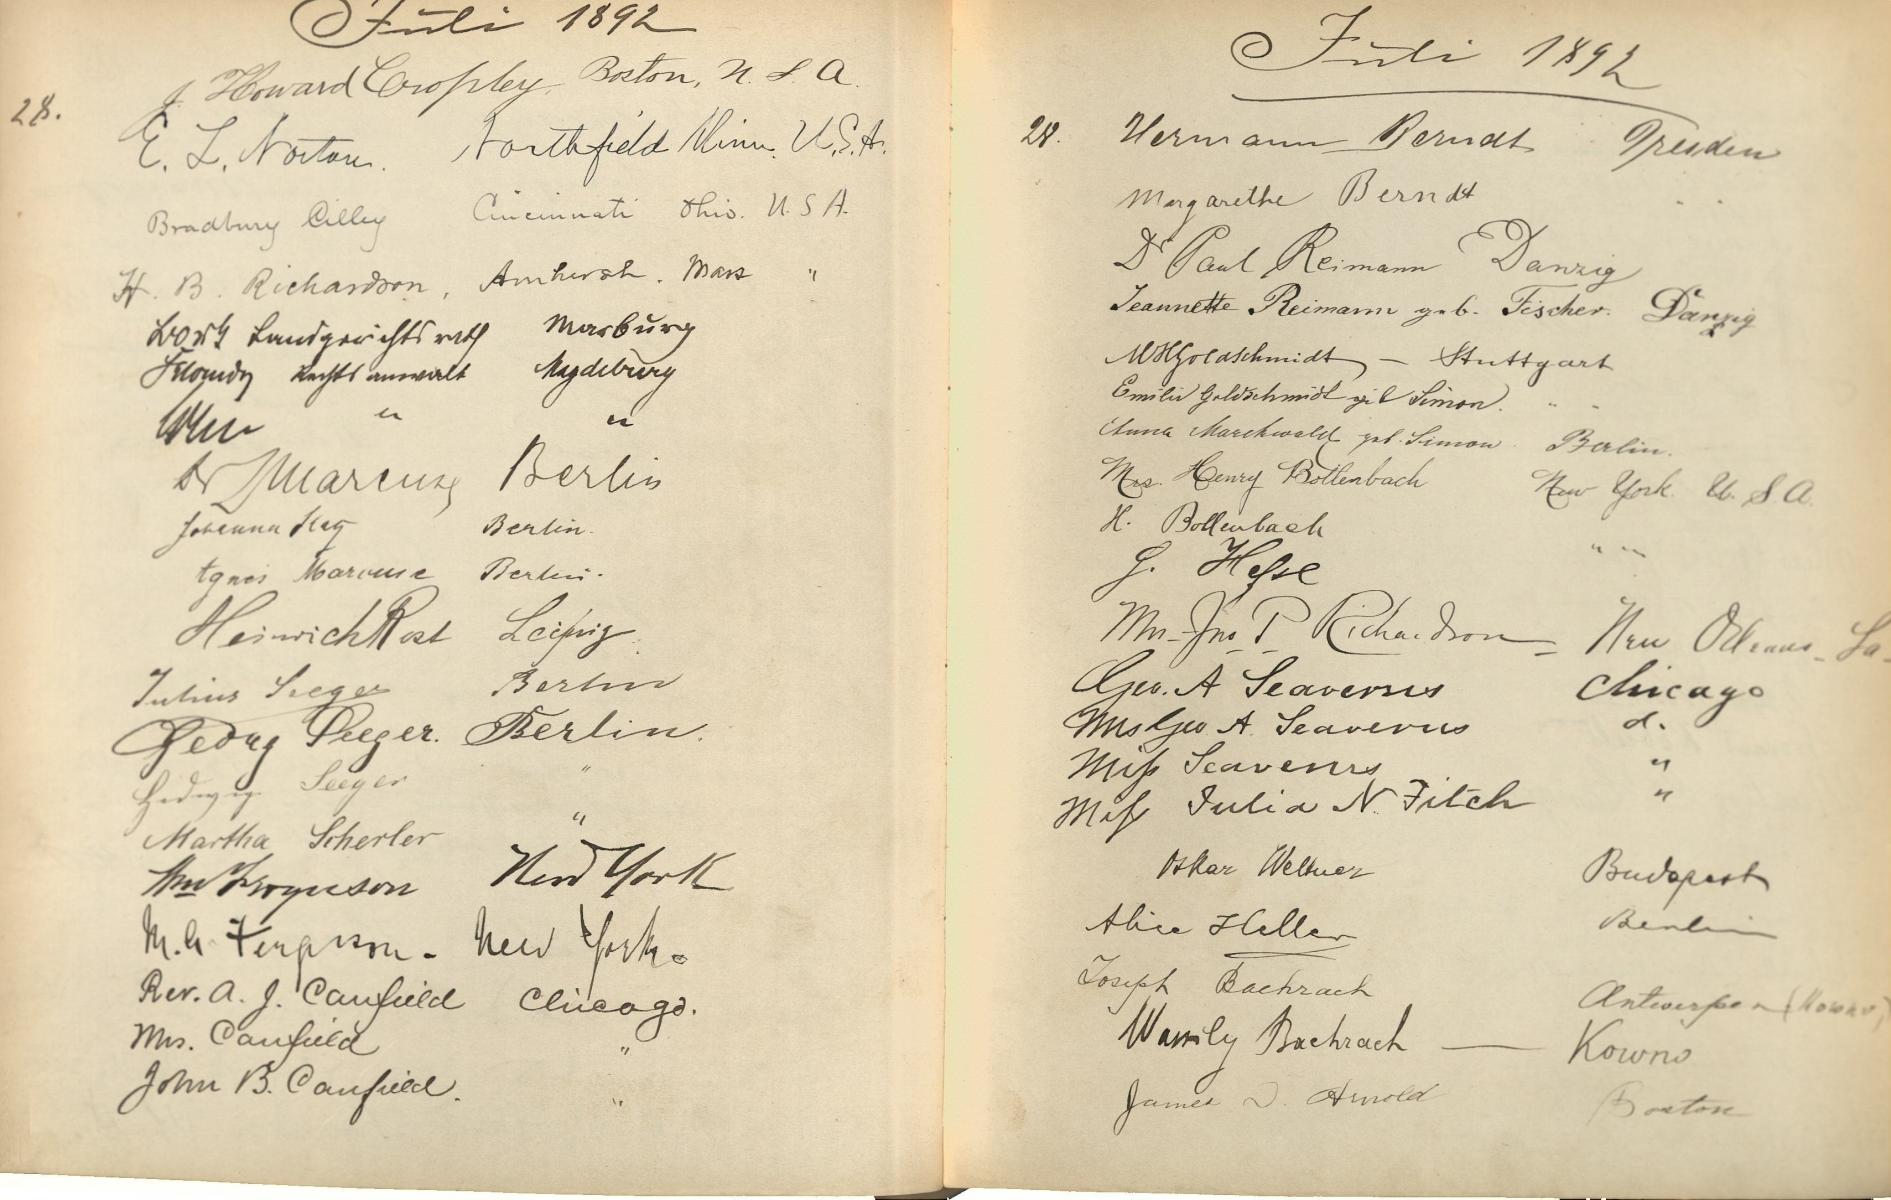 Juli 1892
J. Howard Cropley. Boston, U. S. A.
28.
E. L. Norton. Northfield Minn. U.S.A.
Bradbury Cilley Cincinnati Ohio. U. S A.
H. B. Richardson, Amherst. Mass "
Landgerichtsrath Marburg
Rechtsanwalt Magdeburg
" "
Dr Marcuse Berlin
Johanna Berlin.
Agnes Marcuse Berlin.
Heinrich Rost Leipzig.
Julius Seeger Berlin
Georg Seeger. Berlin.
Hedwig Seeger "
Martha Scherler "
Wm Ferguson New York
M. A. Ferguson - New York.
Rev. A. J. Canfield Chicago.
Mrs. Canfield "
John B. Canfield. "
Juli 1892
28. Hermann Berndt Dresden
Margarethe Berndt " "
Dr Paul Reimann Danzig
Jeannette Reimann geb. Fischer. Danzig
M H Goldschmidt — Stuttgart
Emilie Goldschmidt geb Simon. " "
Anna Marckwald geb. Simon Berlin.
Mrs. Henry Bollenbach New York. U. S. A.
H. Bollenbach
" "
G. Hesse
Mrs. Jno P Richardson = New Orleans - La -
Geo. A Seaverns Chicago
Mrs Geo A. Seaverns d.
Miss Seaverns "
Miss Julia N. Fitch "
Oskar Weltner Budapest
Alice Heller Berlin
Joseph Bachrach Antwerpen (Kowno)
Wassily Bachrach — Kowno
James D. Arnold Boston